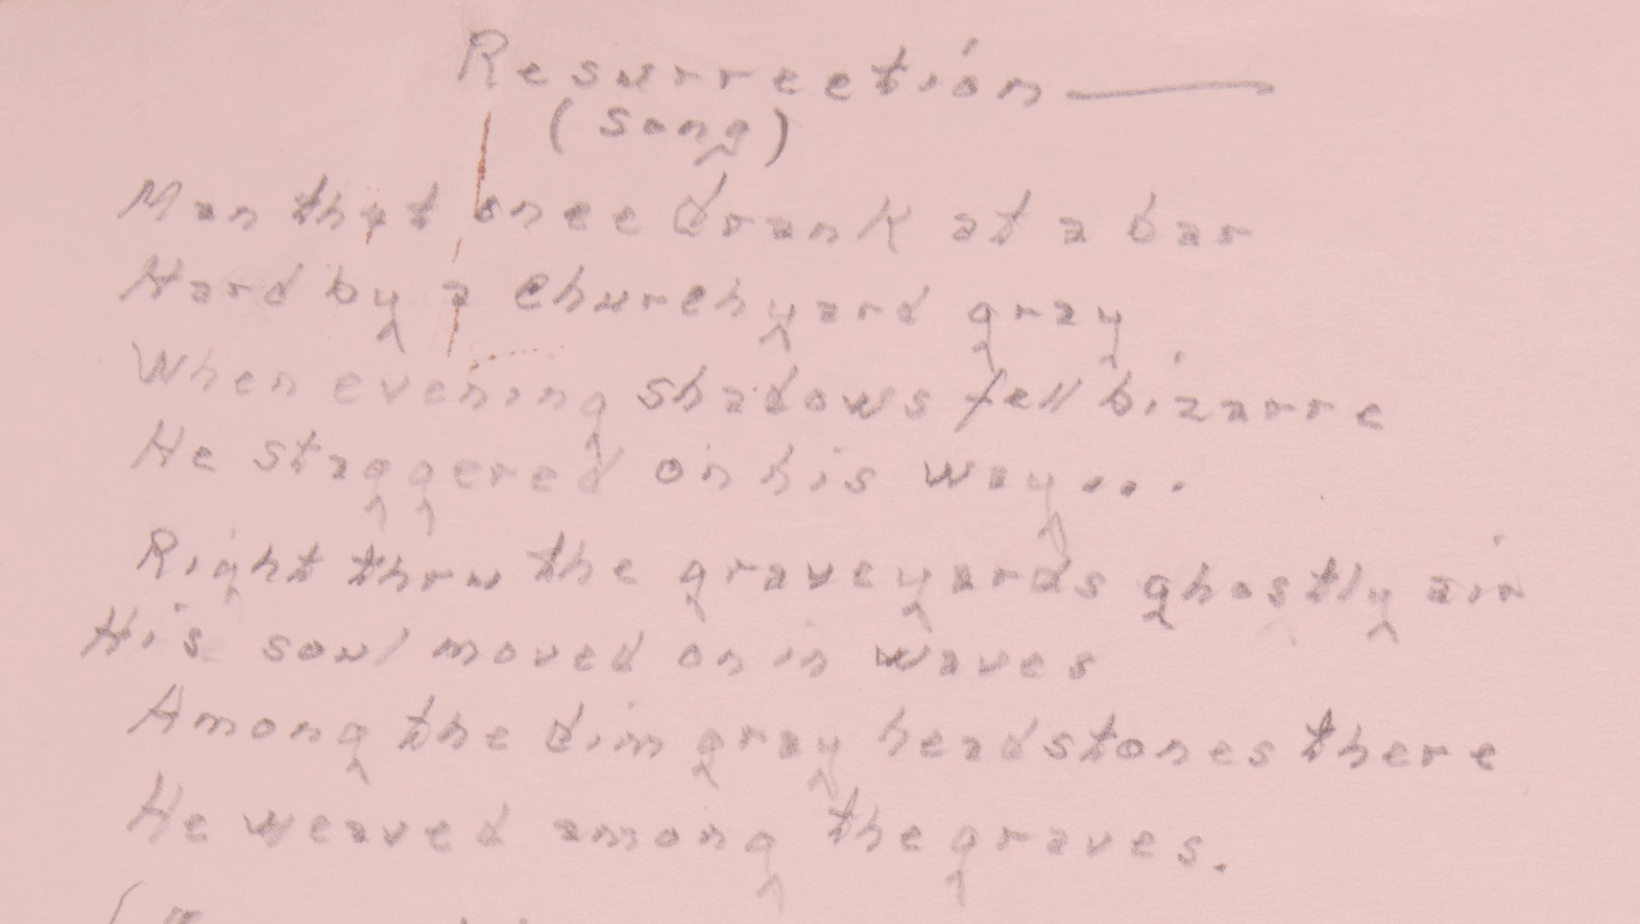 Resurrection
(Song)
Man that once drank at a bar
Hard by a churchyard gray
When evening shadows fell bizarre
He staggered on his way...
Right thru the graveyards ghostly air
His soul moved on in waves
Among the dim gray headstones there
He weaved among the graves.